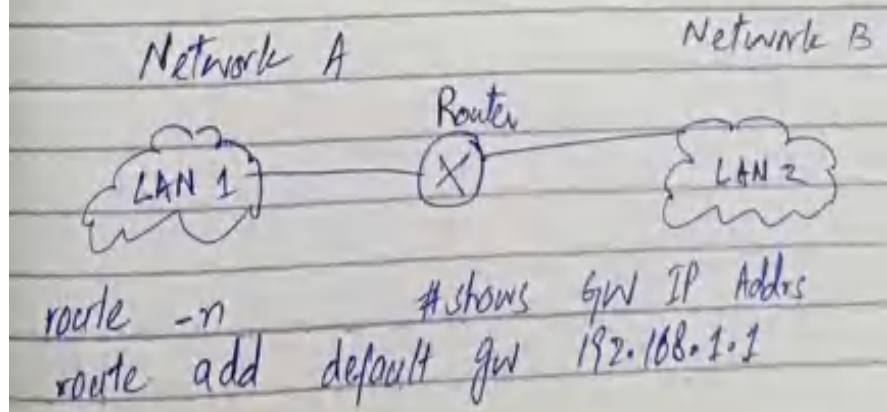 Network A
Network B
Router
LAN 1
LAN 2
route -n #shows GW IP Addrs
route add default gw 192.168.1.1